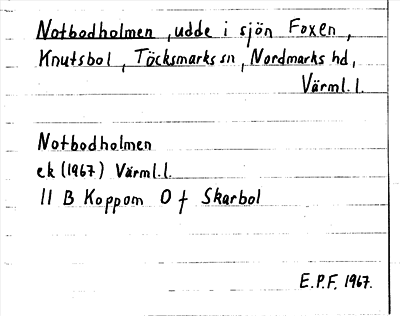 Notbodholmen, udde i sjön Foxen,
Knutsbol, Töcksmarks sn, Nordmarks hd,
Värml. l.
Notbodholmen
ek (1967) Värml. l.
11 B Koppom 0 f Skarbol
E.P.F. 1967.